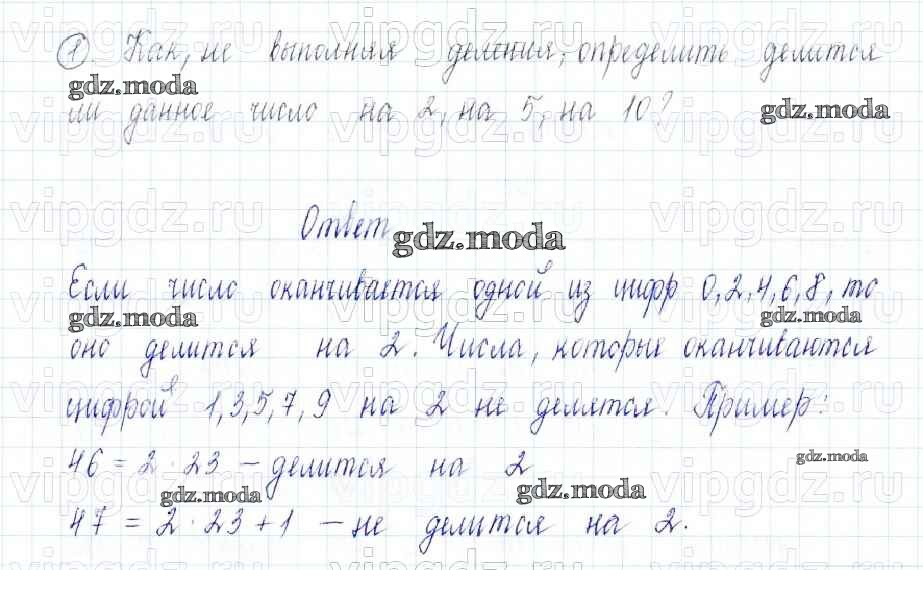 1. Как, не выполняя деления, определить делится
ли данное число на 2, на 5, на 10?
Ответ
Если число оканчивается одной из цифр 0, 2, 4, 6, 8, то
оно делится на 2. Числа, которые оканчиваются
цифрой 1, 3, 5, 7, 9 на 2 не делятся. Пример:
46 = 2 · 23 – делится на 2
47 = 2 · 23 + 1 – не делится на 2.
vipgdz.ru
gdz.moda